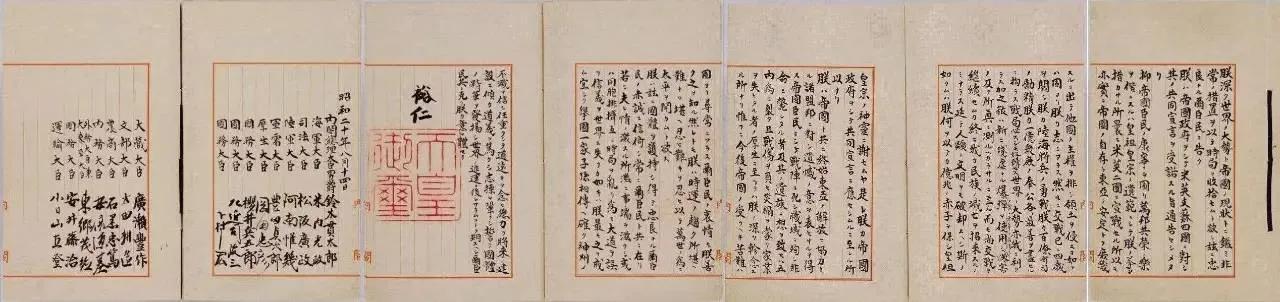 朕深ク世界ノ大勢ト帝國ノ現狀トニ鑑ミ非
常ノ措置ヲ以テ時局ヲ收拾セムト欲シ茲ニ忠
良ナル爾臣民ニ告ク
朕ハ帝國政府ヲシテ米英支蘇四國ニ對シ
其ノ共同宣言ヲ受諾スル旨通告セシメタ
リ
抑〻帝國臣民ノ康寧ヲ圖リ萬邦共榮ノ樂
ヲ偕ニスルハ皇祖皇宗ノ遺範ニシテ朕ノ拳々
措カサル所曩ニ米英二國ニ宣戰セル所以モ
亦實ニ帝國ノ自存ト東亞ノ安定トヲ庶幾
スルニ出テ他國ノ主權ヲ排シ領土ヲ侵スカ如キ
ハ固ヨリ朕カ志ニアラス然ルニ交戰已ニ四歳
ヲ閲シ朕カ陸海將兵ノ勇戰朕カ百僚有司
ノ勵精朕カ一億衆庶ノ奉公各〻最善ヲ盡セルニ
拘ラス戰局必スシモ好轉セス世界ノ大勢亦我ニ利アラ
ス加之敵ハ新ニ殘虐ナル爆彈ヲ使用シテ頻ニ無辜ヲ殺傷シ慘害
ノ及フ所眞ニ測ルヘカラサルニ至ル而モ尚交戰ヲ
繼續セムカ終ニ我カ民族ノ滅亡ヲ招來スルノ
ミナラス延テ人類ノ文明ヲモ破却スヘシ斯ノ
如クムハ朕何ヲ以テカ億兆ノ赤子ヲ保シ皇祖
皇宗ノ神靈ニ謝セムヤ是レ朕カ帝國
政府ヲシテ共同宣言ニ應セシムルニ至レル所
以ナリ
朕ハ帝國ト共ニ終始東亞ノ解放ニ協力セ
ル諸盟邦ニ對シ遺憾ノ意ヲ表セサルヲ得
ス帝國臣民ニシテ戰陣ニ死シ職域ニ殉シ非
命ニ斃レタル者及其ノ遺族ニ想ヲ致セハ五
內爲ニ裂ク且戰傷ヲ負ヒ災禍ヲ蒙リ家業
ヲ失ヒタル者ノ厚生ニ至リテハ朕ノ深ク軫念ス
ル所ナリ惟フニ今後帝國ノ受クヘキ苦難ハ
固ヨリ尋常ニアラス爾臣民ノ衷情モ朕善
ク之ヲ知ル然レトモ朕ハ時運ノ趨ク所堪ヘ
難キヲ堪ヘ忍ヒ難キヲ忍ヒ以テ萬世ノ爲ニ
太平ヲ開カムト欲ス
朕ハ茲ニ國體ヲ護持シ得テ忠良ナル爾臣
民ノ赤誠ニ信倚シ常ニ爾臣民ト共ニ在リ
若シ夫レ情ノ激スル所濫ニ事端ヲ滋クシ或
ハ同胞排擠互ニ時局ヲ亂リ爲ニ大道ヲ誤
リ信義ヲ世界ニ失フカ如キハ朕最モ之ヲ戒
ム宜シク擧國一家子孫相傳ヘ確ク神州ノ
不滅ヲ信シ任重クシテ道遠キヲ念ヒ總力ヲ將來ノ建
設ニ傾ケ道義ヲ篤クシ志操ヲ鞏クシ誓テ國體
ノ精華ヲ發揚シ世界ノ進運ニ後レサラムコトヲ期スヘシ爾臣
民其レ克ク朕カ意ヲ體セヨ
裕仁
天皇御璽
昭和二十年八月十四日
內閣總理大臣男爵 鈴木貫太郎
海軍大臣 米內光政
司法大臣 松阪廣政
陸軍大臣 阿南惟幾
軍需大臣 豐田貞次郎
厚生大臣 岡田忠彥
國務大臣 櫻井兵五郎
國務大臣 左近司政三
國務大臣 下村宏
大藏大臣 廣瀨豐作
文部大臣 太田耕造
農商大臣 石黑忠篤
內務大臣 安倍源基
外務大臣兼
大東亞大臣 東鄕茂德
國務大臣 安井藤治
運輸大臣 小日山直登